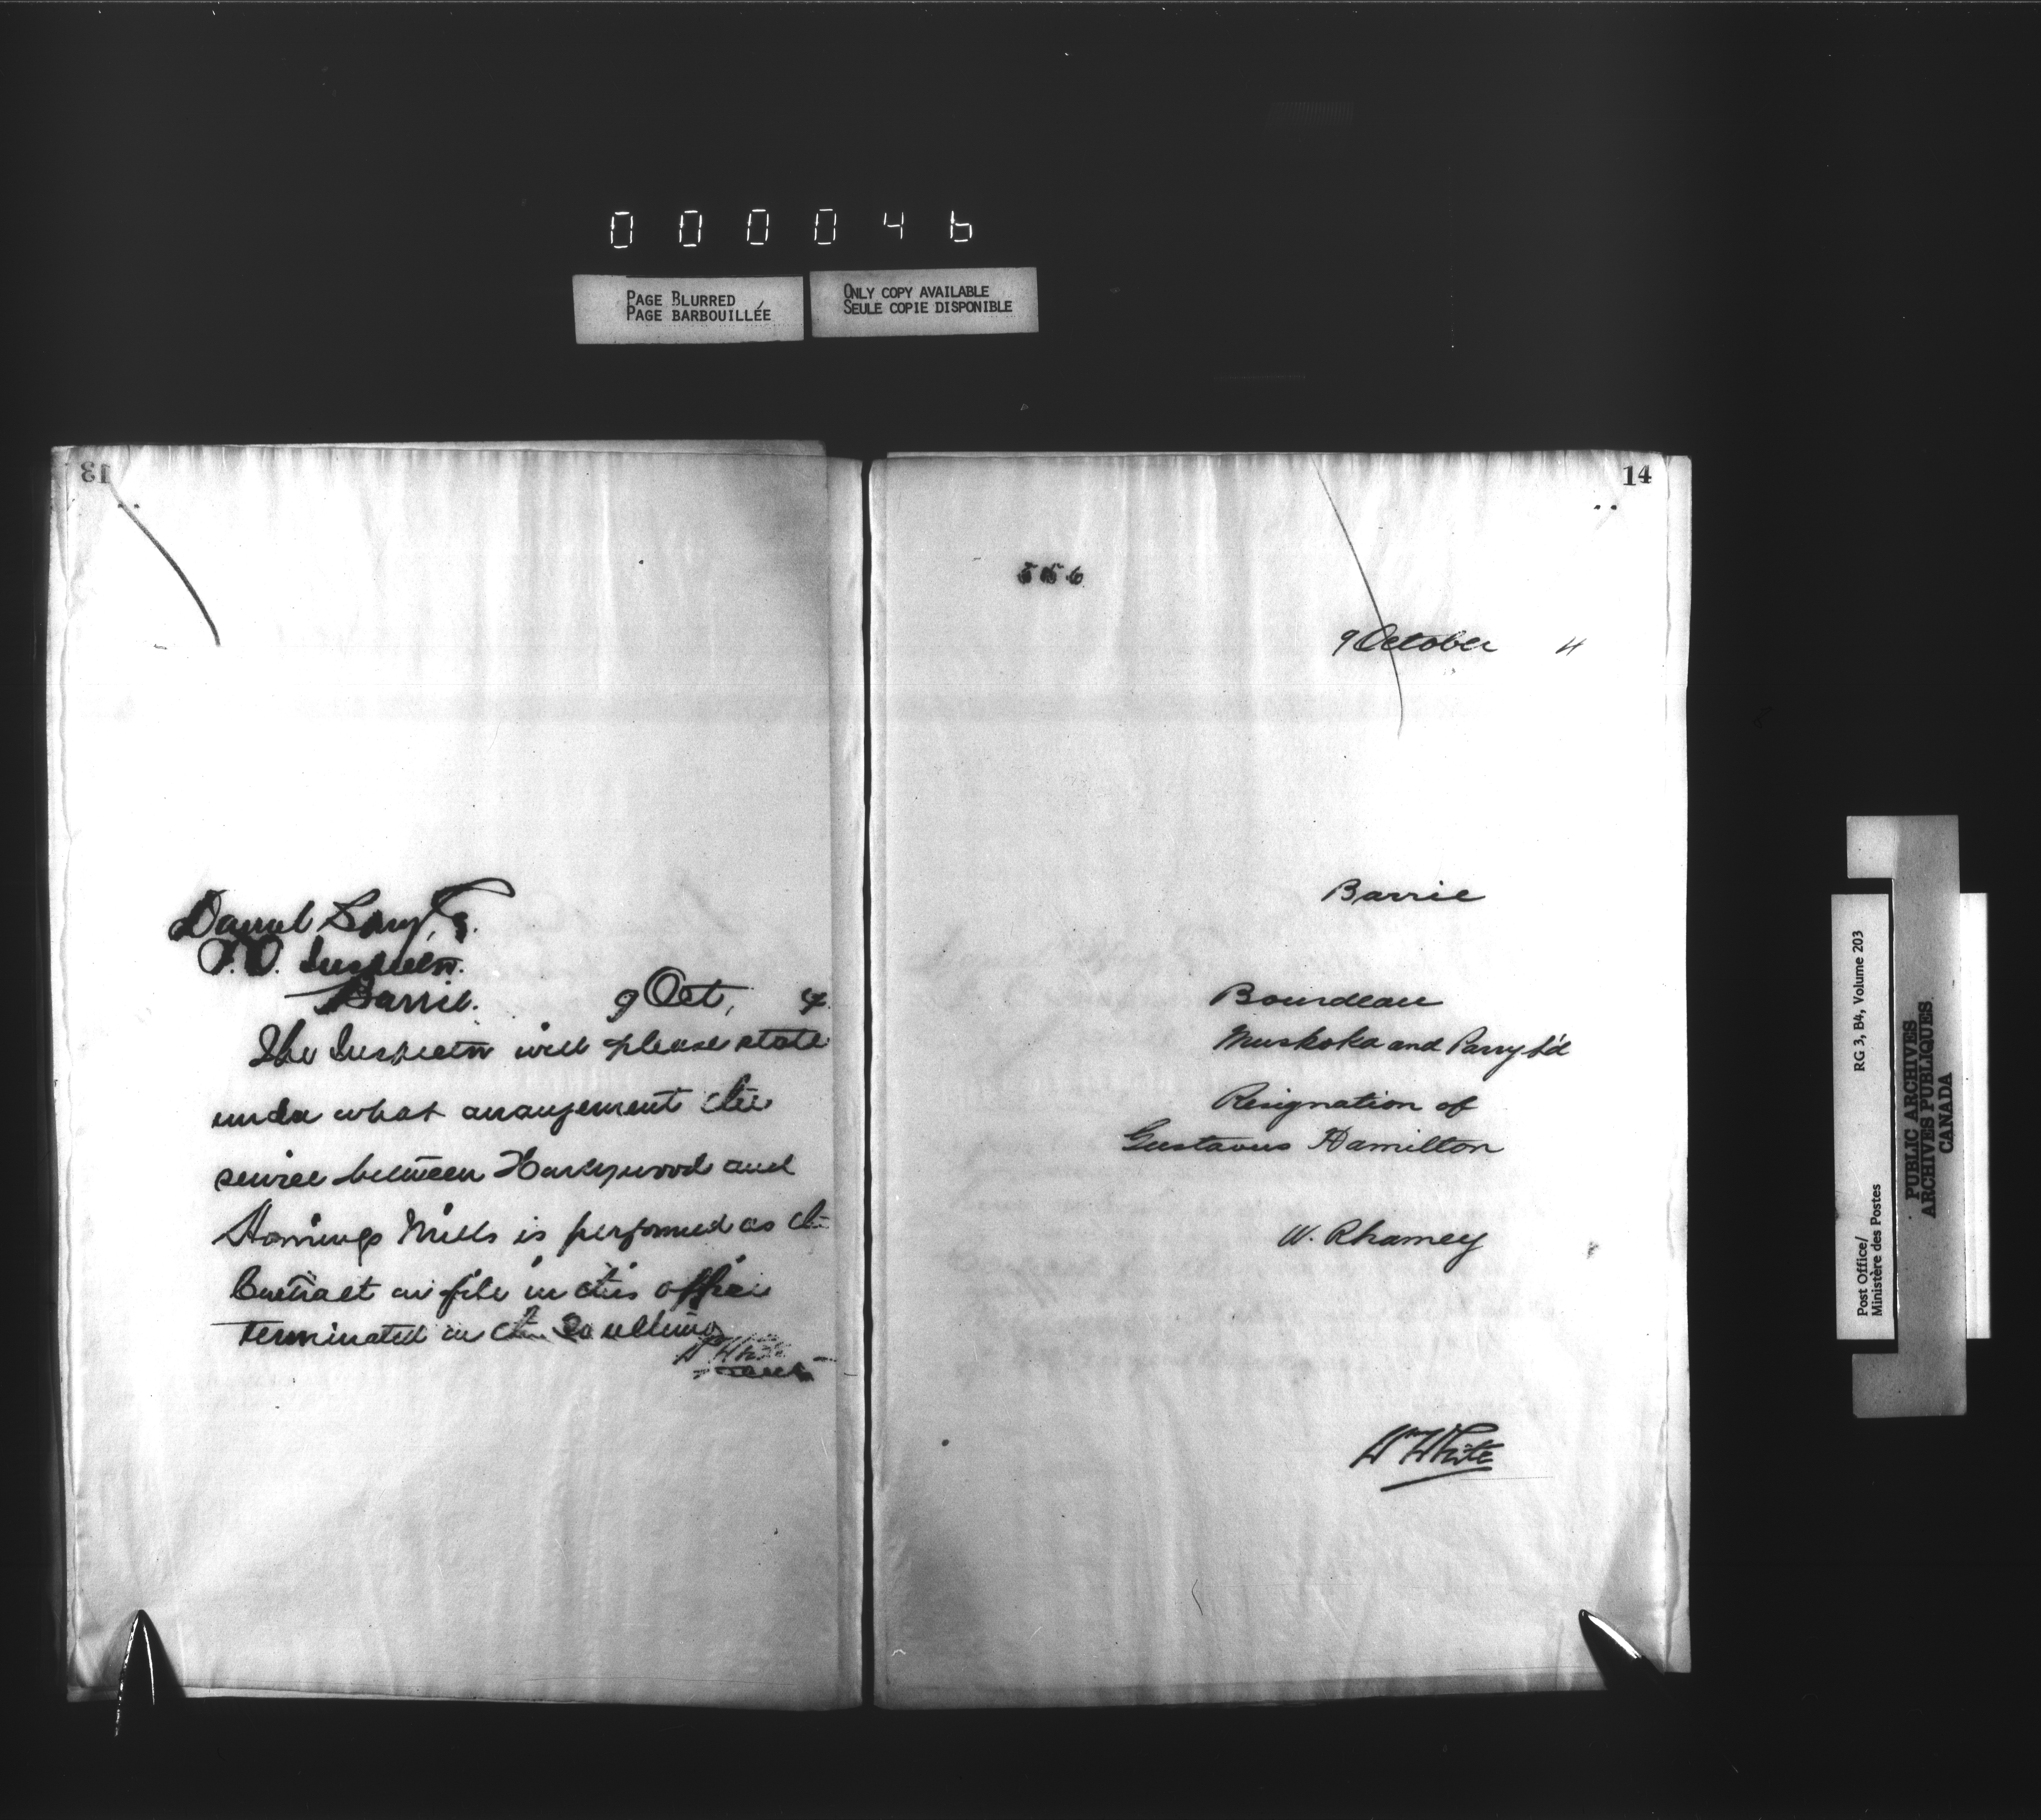 000046
PAGE BLURRED
PAGE BARBOUILLÉE
ONLY COPY AVAILABLE
SEULE COPIE DISPONIBLE
13
Daniel Spry,
P.O. Inspector.
Barrie. 9 Oct, 4
The Inspector will please state
under what arrangement the
service between Honeywood and
Hornings Mills is performed as the
Contract on file in this office
terminated on the 30 ultimo
Wm White
14
556
9 October 4
Barrie
Bourdeau
Muskoka and Parry S'd
Resignation of
Gustavus Hamilton
W. Rhamey
Wm White
Post Office/
Ministère des Postes
RG 3, B4, Volume 203
PUBLIC ARCHIVES
ARCHIVES PUBLIQUES
CANADA